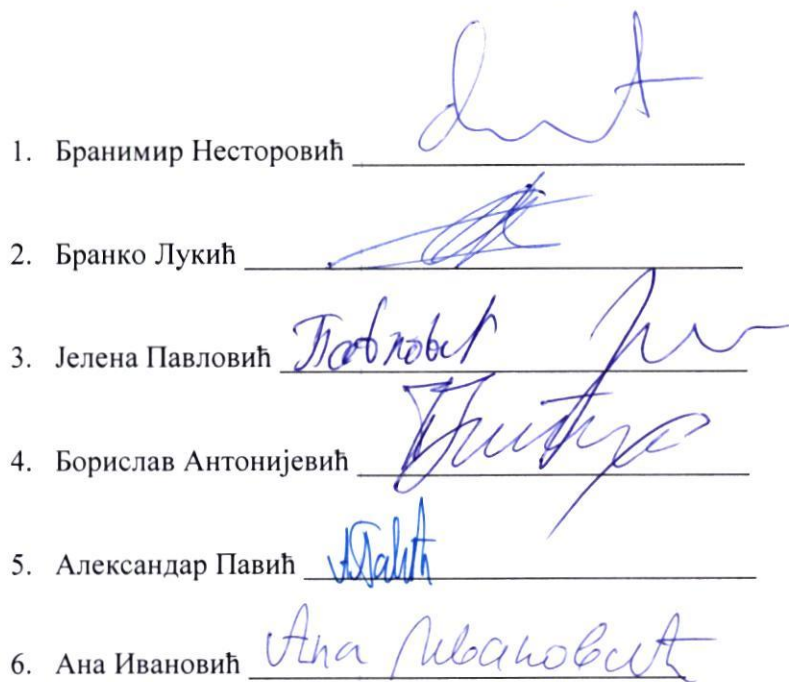 1. Бранимир Несторовић
2. Бранко Лукић
3. Јелена Павловић Павловић
4. Борислав Антонијевић
5. Александар Павић АПавић
6. Ана Ивановић Ана Ивановић